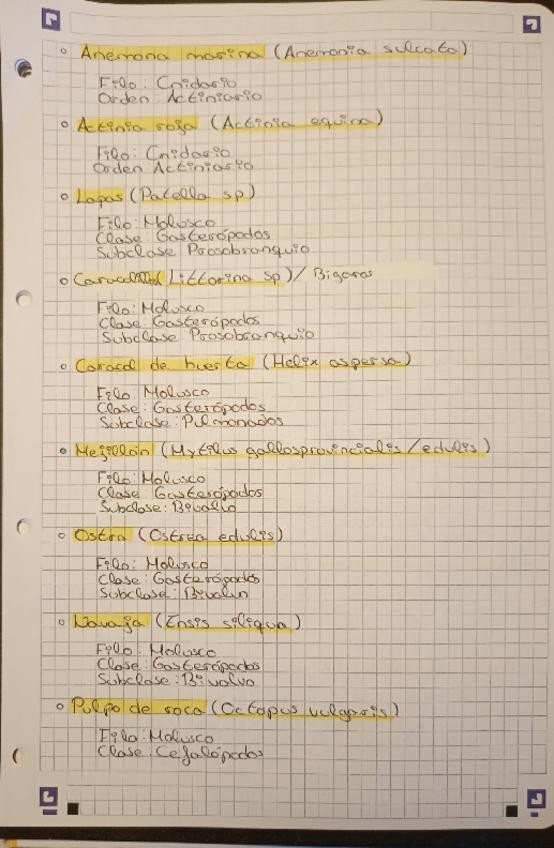 Anemona marina (Anemonia sulcata)
Filo: Cnidario
Orden: Actiniario
Actinia roja (Actinia equina)
Filo: Cnidario
Orden Actiniario
Lapas (Patella sp)
Filo: Molusco
Clase: Gasterópodos
Subclase Prosobranquio
(Littorina sp) / Bigaros
Filo: Molusco
Clase: Gasterópodos
Subclase Prosobranquio
Caracol de huerta (Helix aspersa)
Filo Molusco
Clase: Gasterópodos
Subclase: Pulmonados
Mejilloin (Mytilus galloprovincialis / edulis)
Filo: Molusco
Clase: Gasterópodos
Subclase: Bivalvo
Ostra (Ostrea edulis)
Filo: Molusco
Clase: Gasterópodos
Subclase:
Navaja (Ensis siliqua)
Filo: Molusco
Clase: Gasterópodos
Subclase: Bivalvo
Pulpo de roca (Octopus vulgaris)
Filo: Molusco
Clase: Cefalópodos